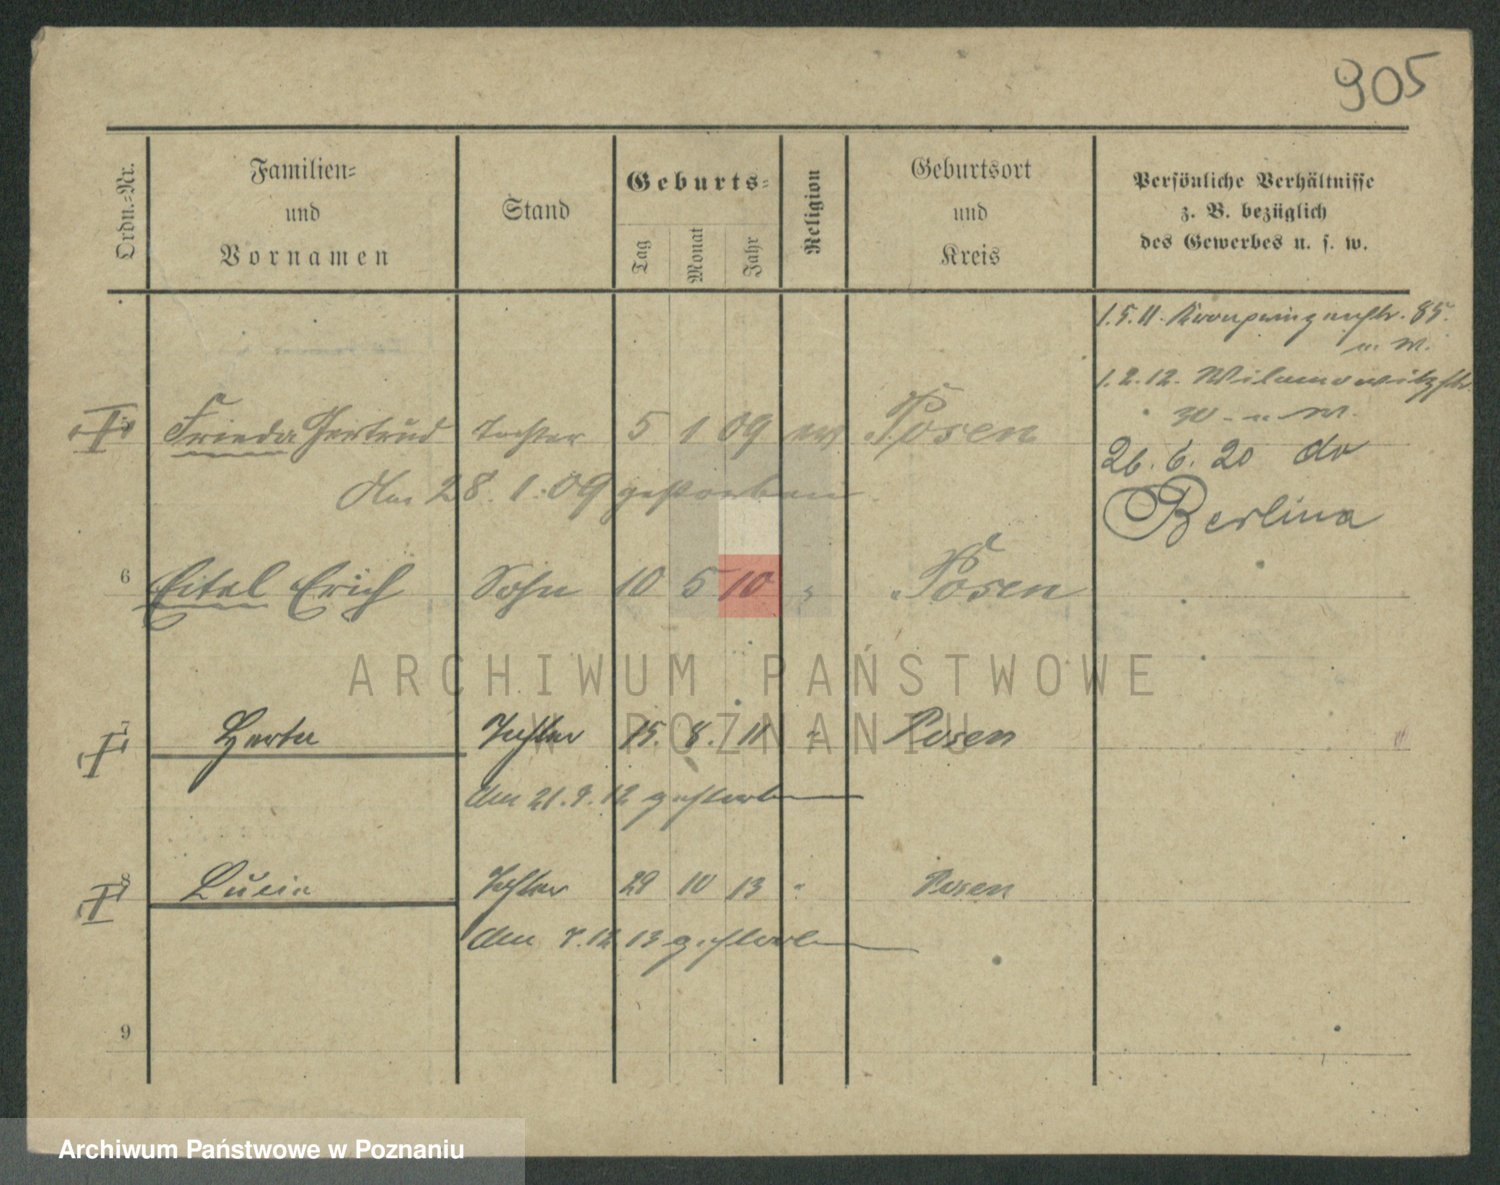 905
Ordn.-Nr.
Familien-
und
Vornamen
Stand
Geburts-
Tag
Monat
Jahr
Religion
Geburtsort
und
Kreis
Persönliche Verhältnisse
z. B. bezüglich
des Gewerbes u. s. w.
1.5.11. Kronprinzenstr. 85.
1.2.12. Wilamowitzstr.
Frieda Gertrud Tochter 5 1 09 Posen
26. 6. 20 do
Am 28. 1. 09 gestorben
Berlina
6 Eital Erich Sohn 10 5 10 " Posen
ARCHIWUM PAŃSTWOWE
W POZNANIU
7 Herta Tochter 15. 8. 11 " Posen
Am 21.9.12 gestorben
8 Lucia Tochter 29 10 13 " Posen
Am 7.12 13 gestorben
9
Archiwum Państwowe w Poznaniu